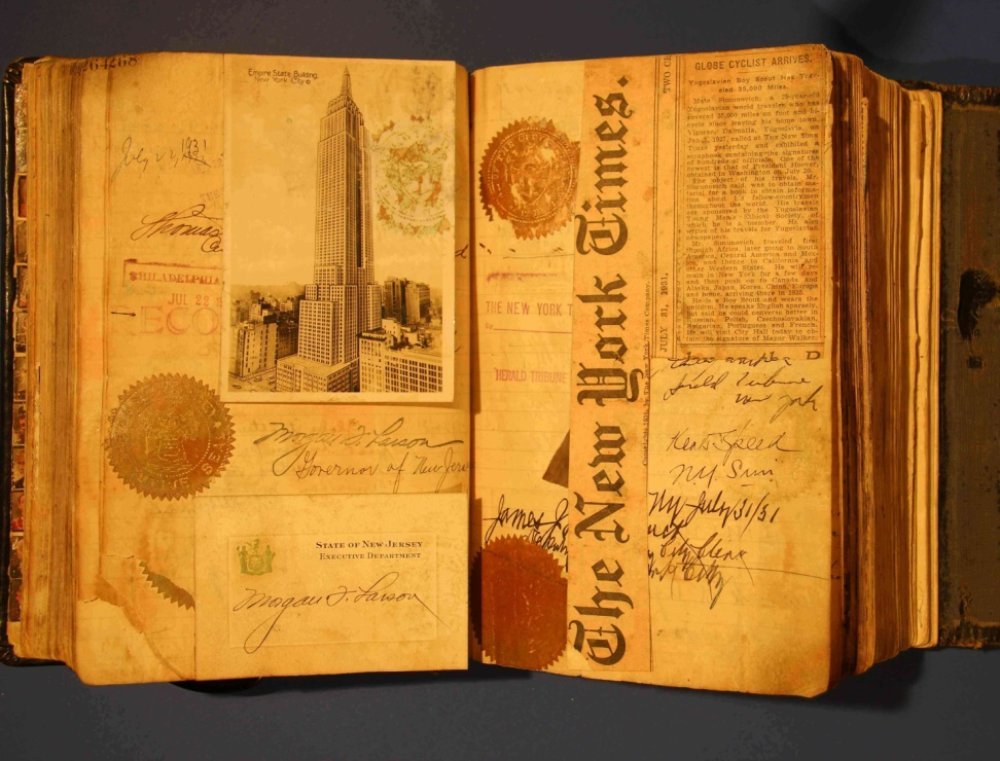 264268
Empire State Building,
New York City
July 1931
Thomas
PHILADELPHIA
JUL 22
ECO
Morgan F. Larson
Governor of New Jersey
STATE OF NEW JERSEY
EXECUTIVE DEPARTMENT
Morgan F. Larson
THE NEW YORK T
by
HERALD TRIBUNE
James J.
The New York Times.
TWO C
JULY 31, 1931.
GLOBE CYCLIST ARRIVES.
Yugoslavian Boy Scout Has Trav-
eled 35,000 Miles.
Yugoslavian world traveler who has
covered 35,000 miles on foot and bi-
cycle since leaving his home town
Dalmatia, Yugoslavia, on
1927, called at THE NEW YORK
TIMES yesterday and exhibited a
scrapbook containing the signatures
of hundreds of officials. One of the
newest is that of President Hoover,
obtained in Washington on July 20.
The object of his travels, Mr.
Simunovich said, was to obtain ma-
terial for a book to obtain informa-
tion about his fellow-countrymen
throughout the world. His travels
are sponsored by the Yugoslavian
Young Mens Ethical Society, of
which he is a member. He also
writes of his travels for Yugoslavian
newspapers.
Mr. Simunovich traveled first
through Africa, later going to South
America, Central America and Mex-
ico, and thence to California and
other Western States. He will re-
main in New York for a few days
and then push on to Canada and
Alaska, Japan, Korea, China, Europe
and home, arriving there in
He is a Boy Scout and wears the
uniform. He speaks English sparsely,
but said he could converse better in
Russian, Polish, Czechoslovakian,
Bulgarian, Portuguese and French.
He will visit City Hall today to ob-
tain the signature of Mayor Walker.
D
Herald Tribune
New York
Speed
NY Sun
NY July 31/31
City Clerk
City